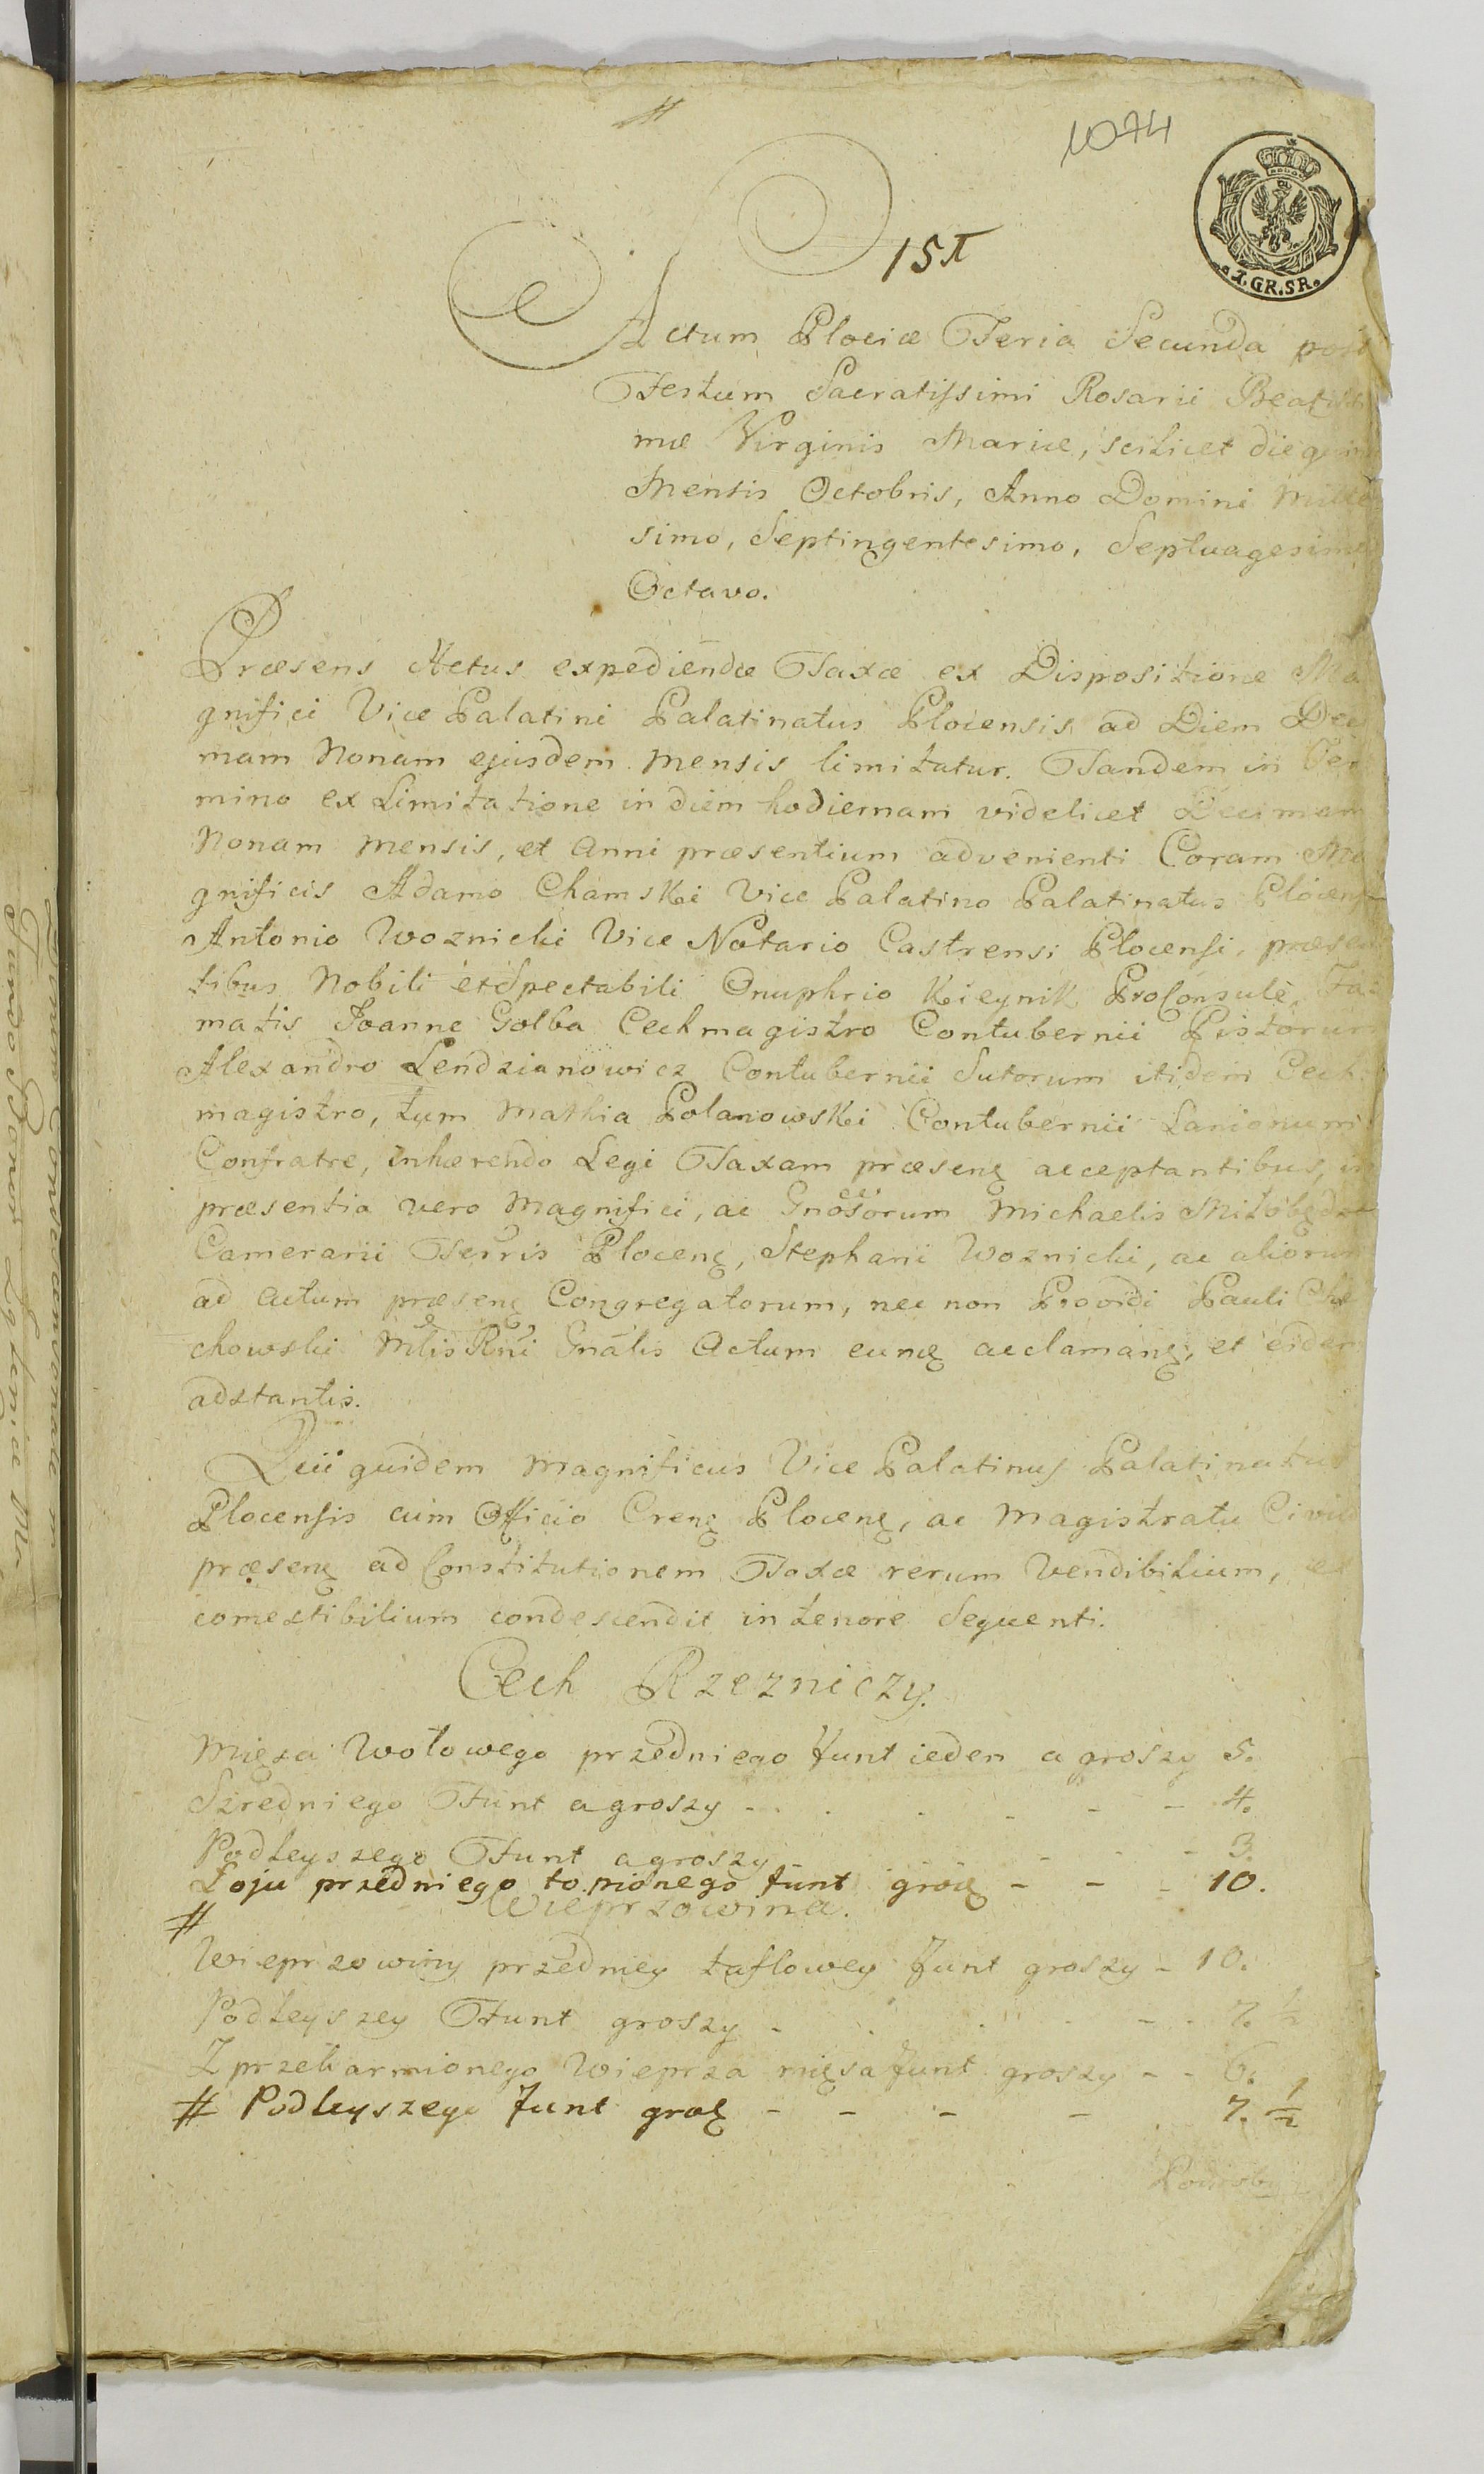 1074
I.GR.SR.
15
Actum Plociæ Feria Secunda post
Festum Sacratissimi Rosarii Beatissi
mæ Virginis Mariæ, scilicet die
Mensis Octobris, Anno Domini Mille
simo, Septingentesimo, Septuagesimo
Octavo.
Præsens Actus expediendæ Taxæ ex Dispositione Ma
gnifici Vice Palatini Palatinatus Plocensis ad Diem Deci
mam Nonam ejusdem mensis limitatur. Tandem in Ter
mino ex Limitatione in diem hodiernam videlicet Decimam
Nonam mensis, et Anni præsentium advenienti Coram Ma
gnificis Adamo Chamski Vice Palatino Palatinatus Plocens
Antonio Woznicki Vice Notario Castrensi Plocensi, præsen
tibus Nobili et Spectabili Onuphrio Kieynik ProConsule, Fa
matis Joanne Golba Cechmagistro Contubernii Pistorum
Alexandro Lendzianowicz Contubernii Sutorum itidem Cech
magistro, tum Mathia Polanowski Contubernii Lanionum
Confratre, inhærendo Legi Taxam præsenę acceptantibus, in
præsentia vero Magnifici, ac Gnosorum Michaelis Miłobędzki
Camerarii Terris Plocenę, Stephani Woznicki, ac aliorum
ad Actum præsenę Congregatorum, nec non Providi Pauli Che
chowski Mlis Rni Gnalis Actum eunę acclamanę, et eidem
adstantis.
Qui quidem Magnificus Vice Palatinus Palatinatus
Plocensis cum Officio Crenę Plocenę, ac Magistratu Civili
præsenę ad Constitutionem Taxæ rerum vendibilium, et
comestibilium condescendit in tenore sequenti.
Cech Rzezniczy.
Mięsa Wołowego przedniego funt ieden a groszy 5.
Szredniego Funt a groszy - - - 4.
Podleyszego Funt a groszy - - - 3.
Łoju przedniego topionego funt groę - - - 10.
Wieprzowina.
#
Wieprzowiny przedniey taflowey funt groszy - 10.
Podleyszey Funt groszy - - - 7. ½
Z przekarmionego Wieprza mięsa funt groszy - - 6.
# Podleyszego funt groę - - - - 7. ½